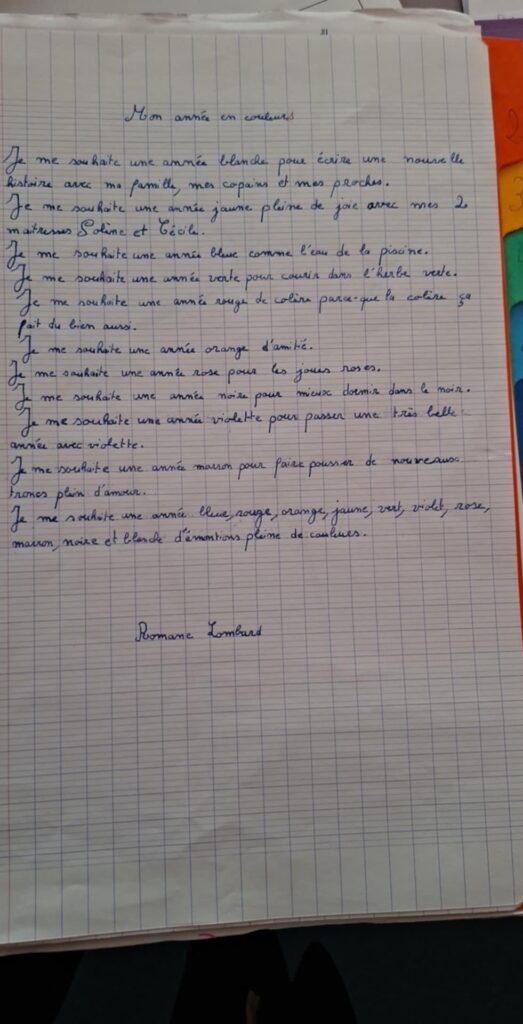 Mon année en couleurs
Je me souhaite une année blanche pour écrire une nouvelle
histoire avec ma famille, mes copains et mes proches.
Je me souhaite une année jaune pleine de joie avec mes 2
maitresses Soline et Cécile.
Je me souhaite une année bleue comme l'eau de la piscine.
Je me souhaite une année verte pour courir dans l'herbe verte.
Je me souhaite une année rouge de colère parce-que la colère ça
fait du bien aussi.
Je me souhaite une année orange d'amitié.
Je me souhaite une année rose pour les joues roses.
Je me souhaite une année noire pour mieux dormir dans le noir.
Je me souhaite une année violette pour passer une très belle
année avec violette.
Je me souhaite une année marron pour faire pousser de nouveaux
troncs plein d'amour.
Je me souhaite une année bleue, rouge, orange, jaune, vert, violet, rose,
marron, noire et blanche d'émotions pleine de couleurs.
Romane Lombard